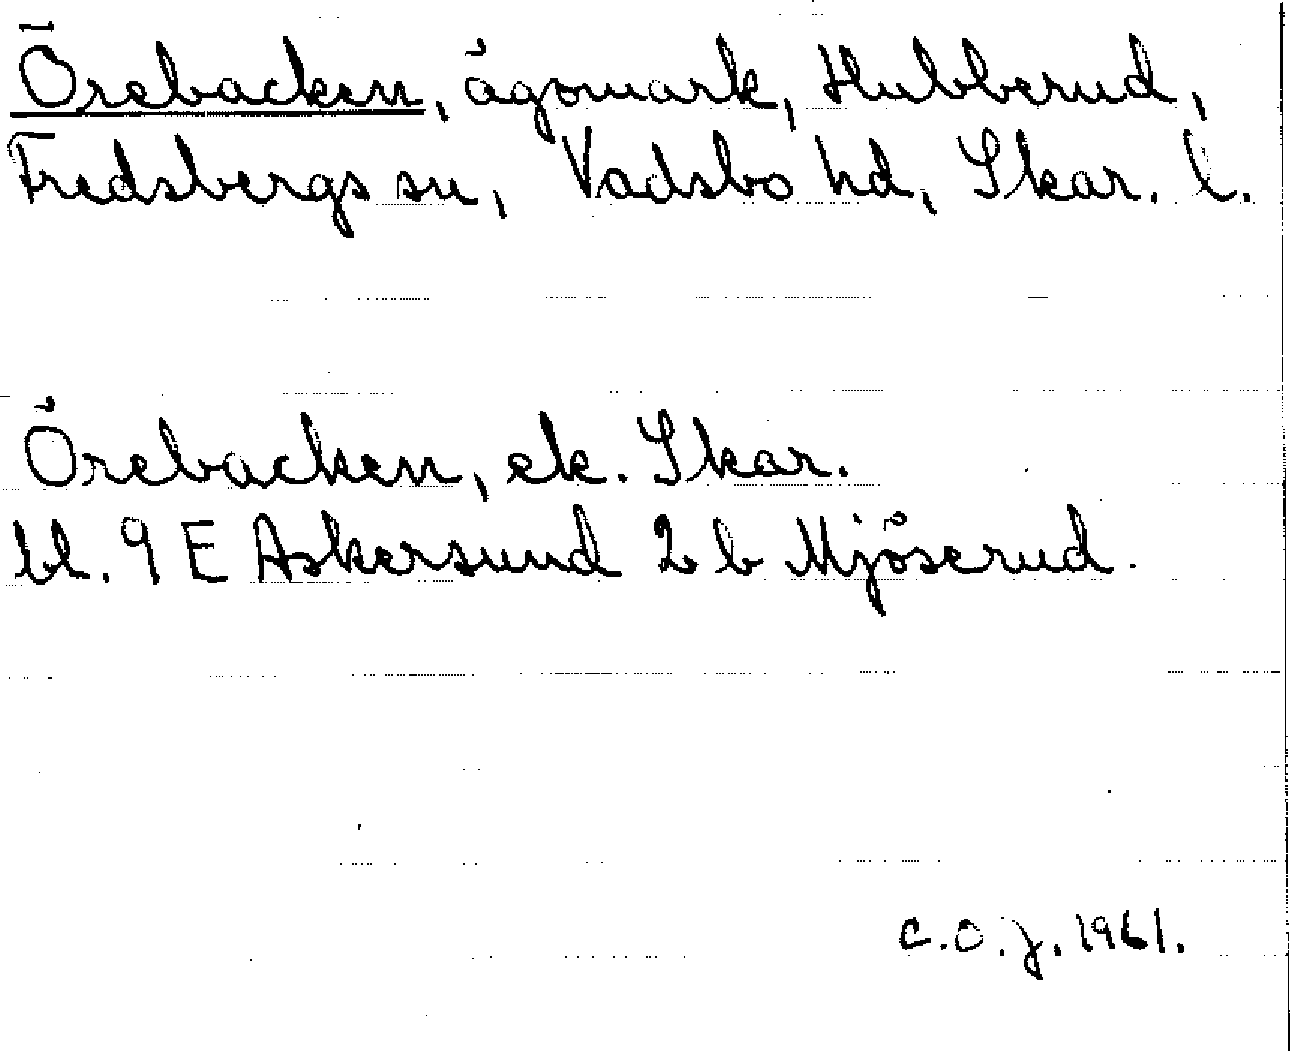 Örebacken, ägomark, Hubberud,
Fredsbergs sn, Vadsbo hd, Skar. l.
Örebacken, ek. Skar.
bl. 9 E Askersund 2 b Mjöserud.
C.O.J. 1961.